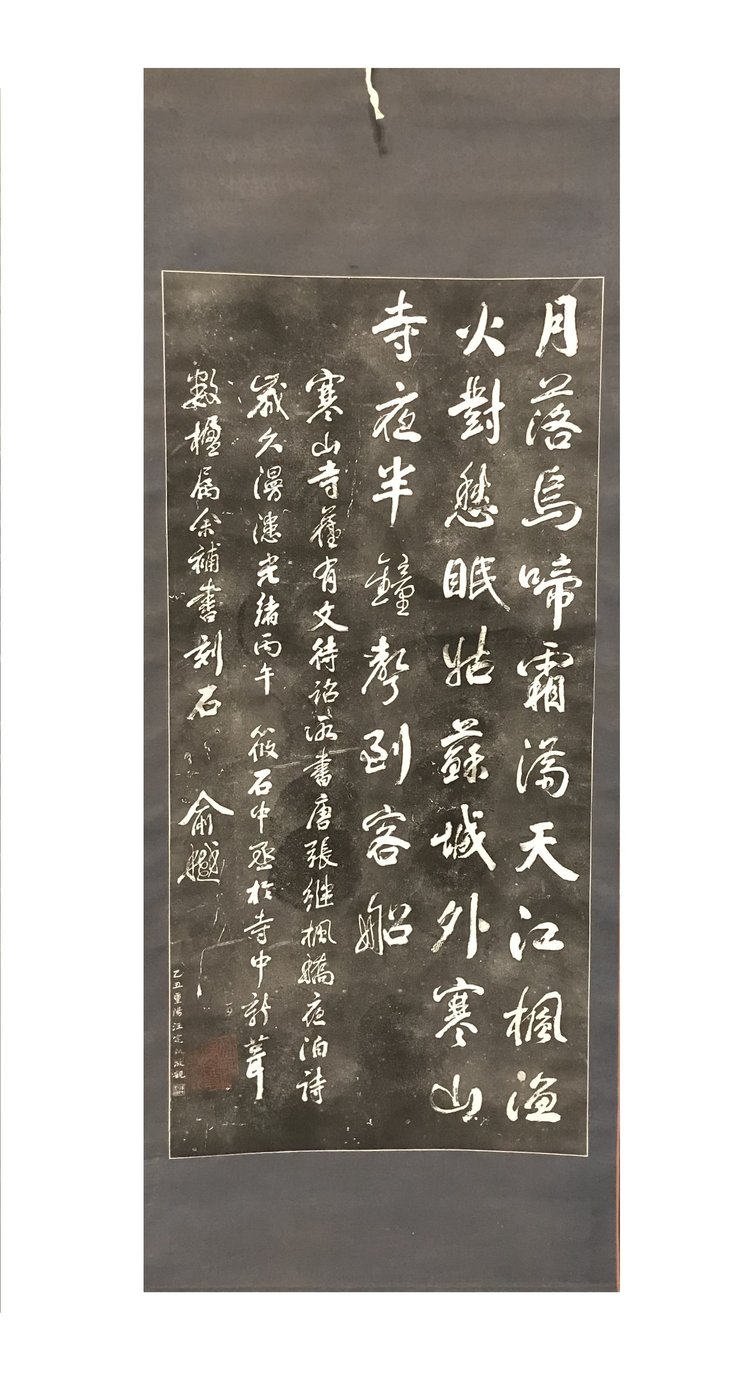 月落烏啼霜满天江楓漁
火對愁眠姑蘇城外寒山
寺夜半鐘聲到客船
寒山寺舊有文待詔所書唐張继楓橋夜泊詩
歲久漫漶光緒丙午筱石中丞於寺中新葺
數楹属余補書刻石
俞樾
乙丑重陽汪定敬觀